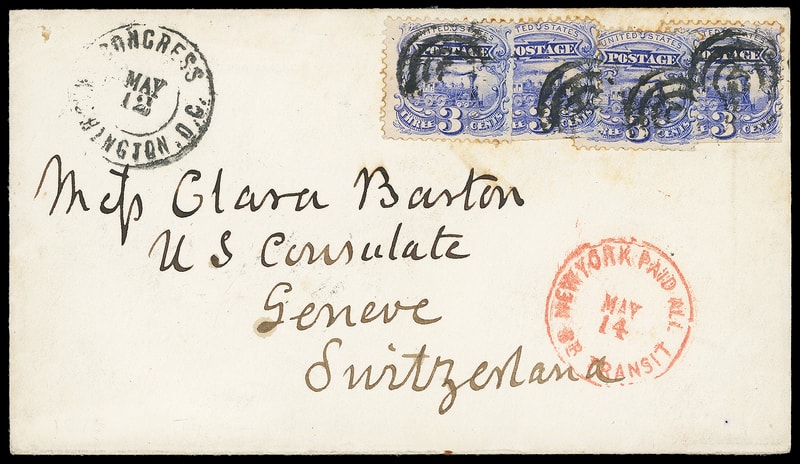 CONGRESS
MAY
12
WASHINGTON D.C.
UNITED STATES
POSTAGE
THREE 3 CENTS
UNITED STATES
POSTAGE
3 CENTS
UNITED STATES
POSTAGE
THREE 3 CENTS
POSTAGE
3 CENTS
Miss Clara Barton
US Consulate
Geneve
Switzerland
NEW YORK PAID ALL
MAY
14
BR TRANSIT